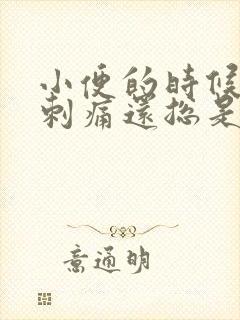 小便的時候
刺痛還總是
意通明